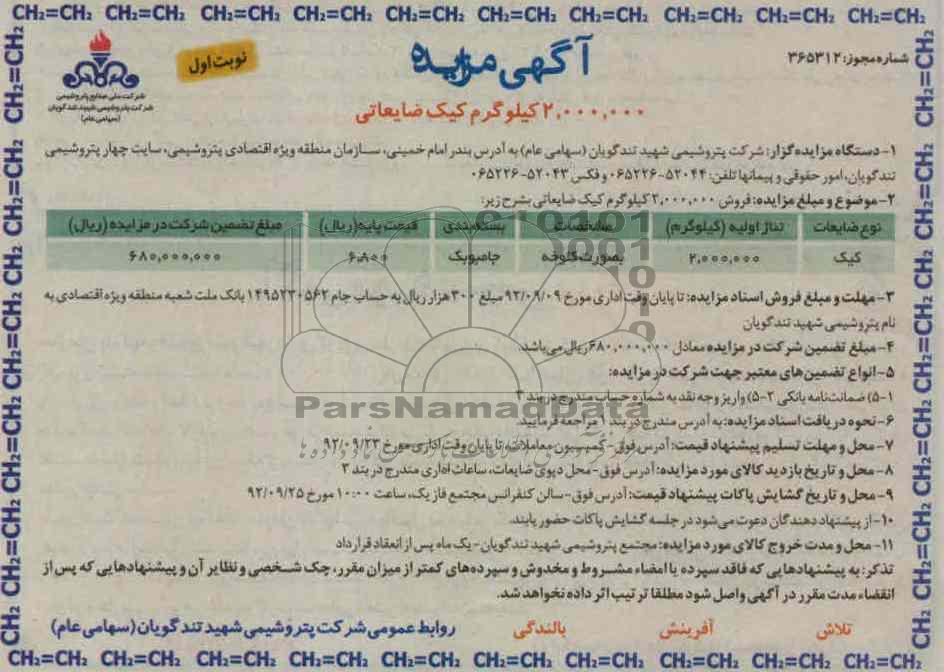 CH₂=CH₂ CH₂=CH₂ CH₂=CH₂ CH₂=CH₂ CH₂=CH₂ CH₂=CH₂ CH₂=CH₂ CH₂=CH₂ CH₂=CH₂ CH₂=CH₂
شماره مجوز: ۳۶۵۳۱۲
آگهی مزایده
نوبت اول
شرکت ملی صنایع پتروشیمی
شرکت پتروشیمی شهید تندگویان
(سهامی عام)
۲,۰۰۰,۰۰۰ کیلوگرم کیک ضایعاتی
۱- دستگاه مزایده گزار: شرکت پتروشیمی شهید تندگویان (سهامی عام) به آدرس بندر امام خمینی، سازمان منطقه ویژه اقتصادی پتروشیمی، سایت چهار پتروشیمی
تندگویان، امور حقوقی و پیمانها تلفن: ۵۲۰۴۴-۰۶۵۲۲۶ و فکس ۵۲۰۴۳-۰۶۵۲۲۶
۲- موضوع و مبلغ مزایده: فروش ۲,۰۰۰,۰۰۰ کیلوگرم کیک ضایعاتی بشرح زیر:
نوع ضایعات تناژ اولیه (کیلوگرم) مشخصات بسته بندی قیمت پایه (ریال) مبلغ تضمین شرکت در مزایده (ریال)
کیک ۲,۰۰۰,۰۰۰ بصورت کلوخه جامبوبگ ۶,۸۰۰ ۶۸۰,۰۰۰,۰۰۰
۳- مهلت و مبلغ فروش اسناد مزایده: تا پایان وقت اداری مورخ ۹۲/۰۹/۰۹ مبلغ ۳۰۰ هزار ریال به حساب جام ۱۴۹۵۲۳۰۵۶۲ بانک ملت شعبه منطقه ویژه اقتصادی به
نام پتروشیمی شهید تندگویان
۴- مبلغ تضمین شرکت در مزایده معادل ۶۸۰,۰۰۰,۰۰۰ ریال می باشد.
۵- انواع تضمین های معتبر جهت شرکت در مزایده:
۵-۱) ضمانت نامه بانکی ۵-۲) واریز وجه نقد به شماره حساب مندرج در بند ۳
۶- نحوه دریافت اسناد مزایده: به آدرس مندرج در بند ۱ مراجعه فرمایید.
۷- محل و مهلت تسلیم پیشنهاد قیمت: آدرس فوق- کمیسیون معاملات، تا پایان وقت اداری مورخ ۹۲/۰۹/۲۳
۸- محل و تاریخ بازدید کالای مورد مزایده: آدرس فوق- محل دپوی ضایعات، ساعات اداری مندرج در بند ۳
۹- محل و تاریخ گشایش پاکات پیشنهاد قیمت: آدرس فوق- سالن کنفرانس مجتمع فاز یک، ساعت ۱۰:۰۰ مورخ ۹۲/۰۹/۲۵
۱۰- از پیشنهاد دهندگان دعوت می شود در جلسه گشایش پاکات حضور یابند.
۱۱- محل و مدت خروج کالای مورد مزایده: مجتمع پتروشیمی شهید تندگویان- یک ماه پس از انعقاد قرارداد
تذکر: به پیشنهادهایی که فاقد سپرده یا امضاء مشروط و مخدوش و سپرده های کمتر از میزان مقرر، چک شخصی و نظایر آن و پیشنهادهایی که پس از
انقضاء مدت مقرر در آگهی واصل شود مطلقا ترتیب اثر داده نخواهد شد.
تلاش آفرینش بالندگی روابط عمومی شرکت پتروشیمی شهید تندگویان (سهامی عام)
CH₂=CH₂ CH₂=CH₂ CH₂=CH₂ CH₂=CH₂ CH₂=CH₂ CH₂=CH₂ CH₂=CH₂ CH₂=CH₂ CH₂=CH₂ CH₂=CH₂
ParsNamadData